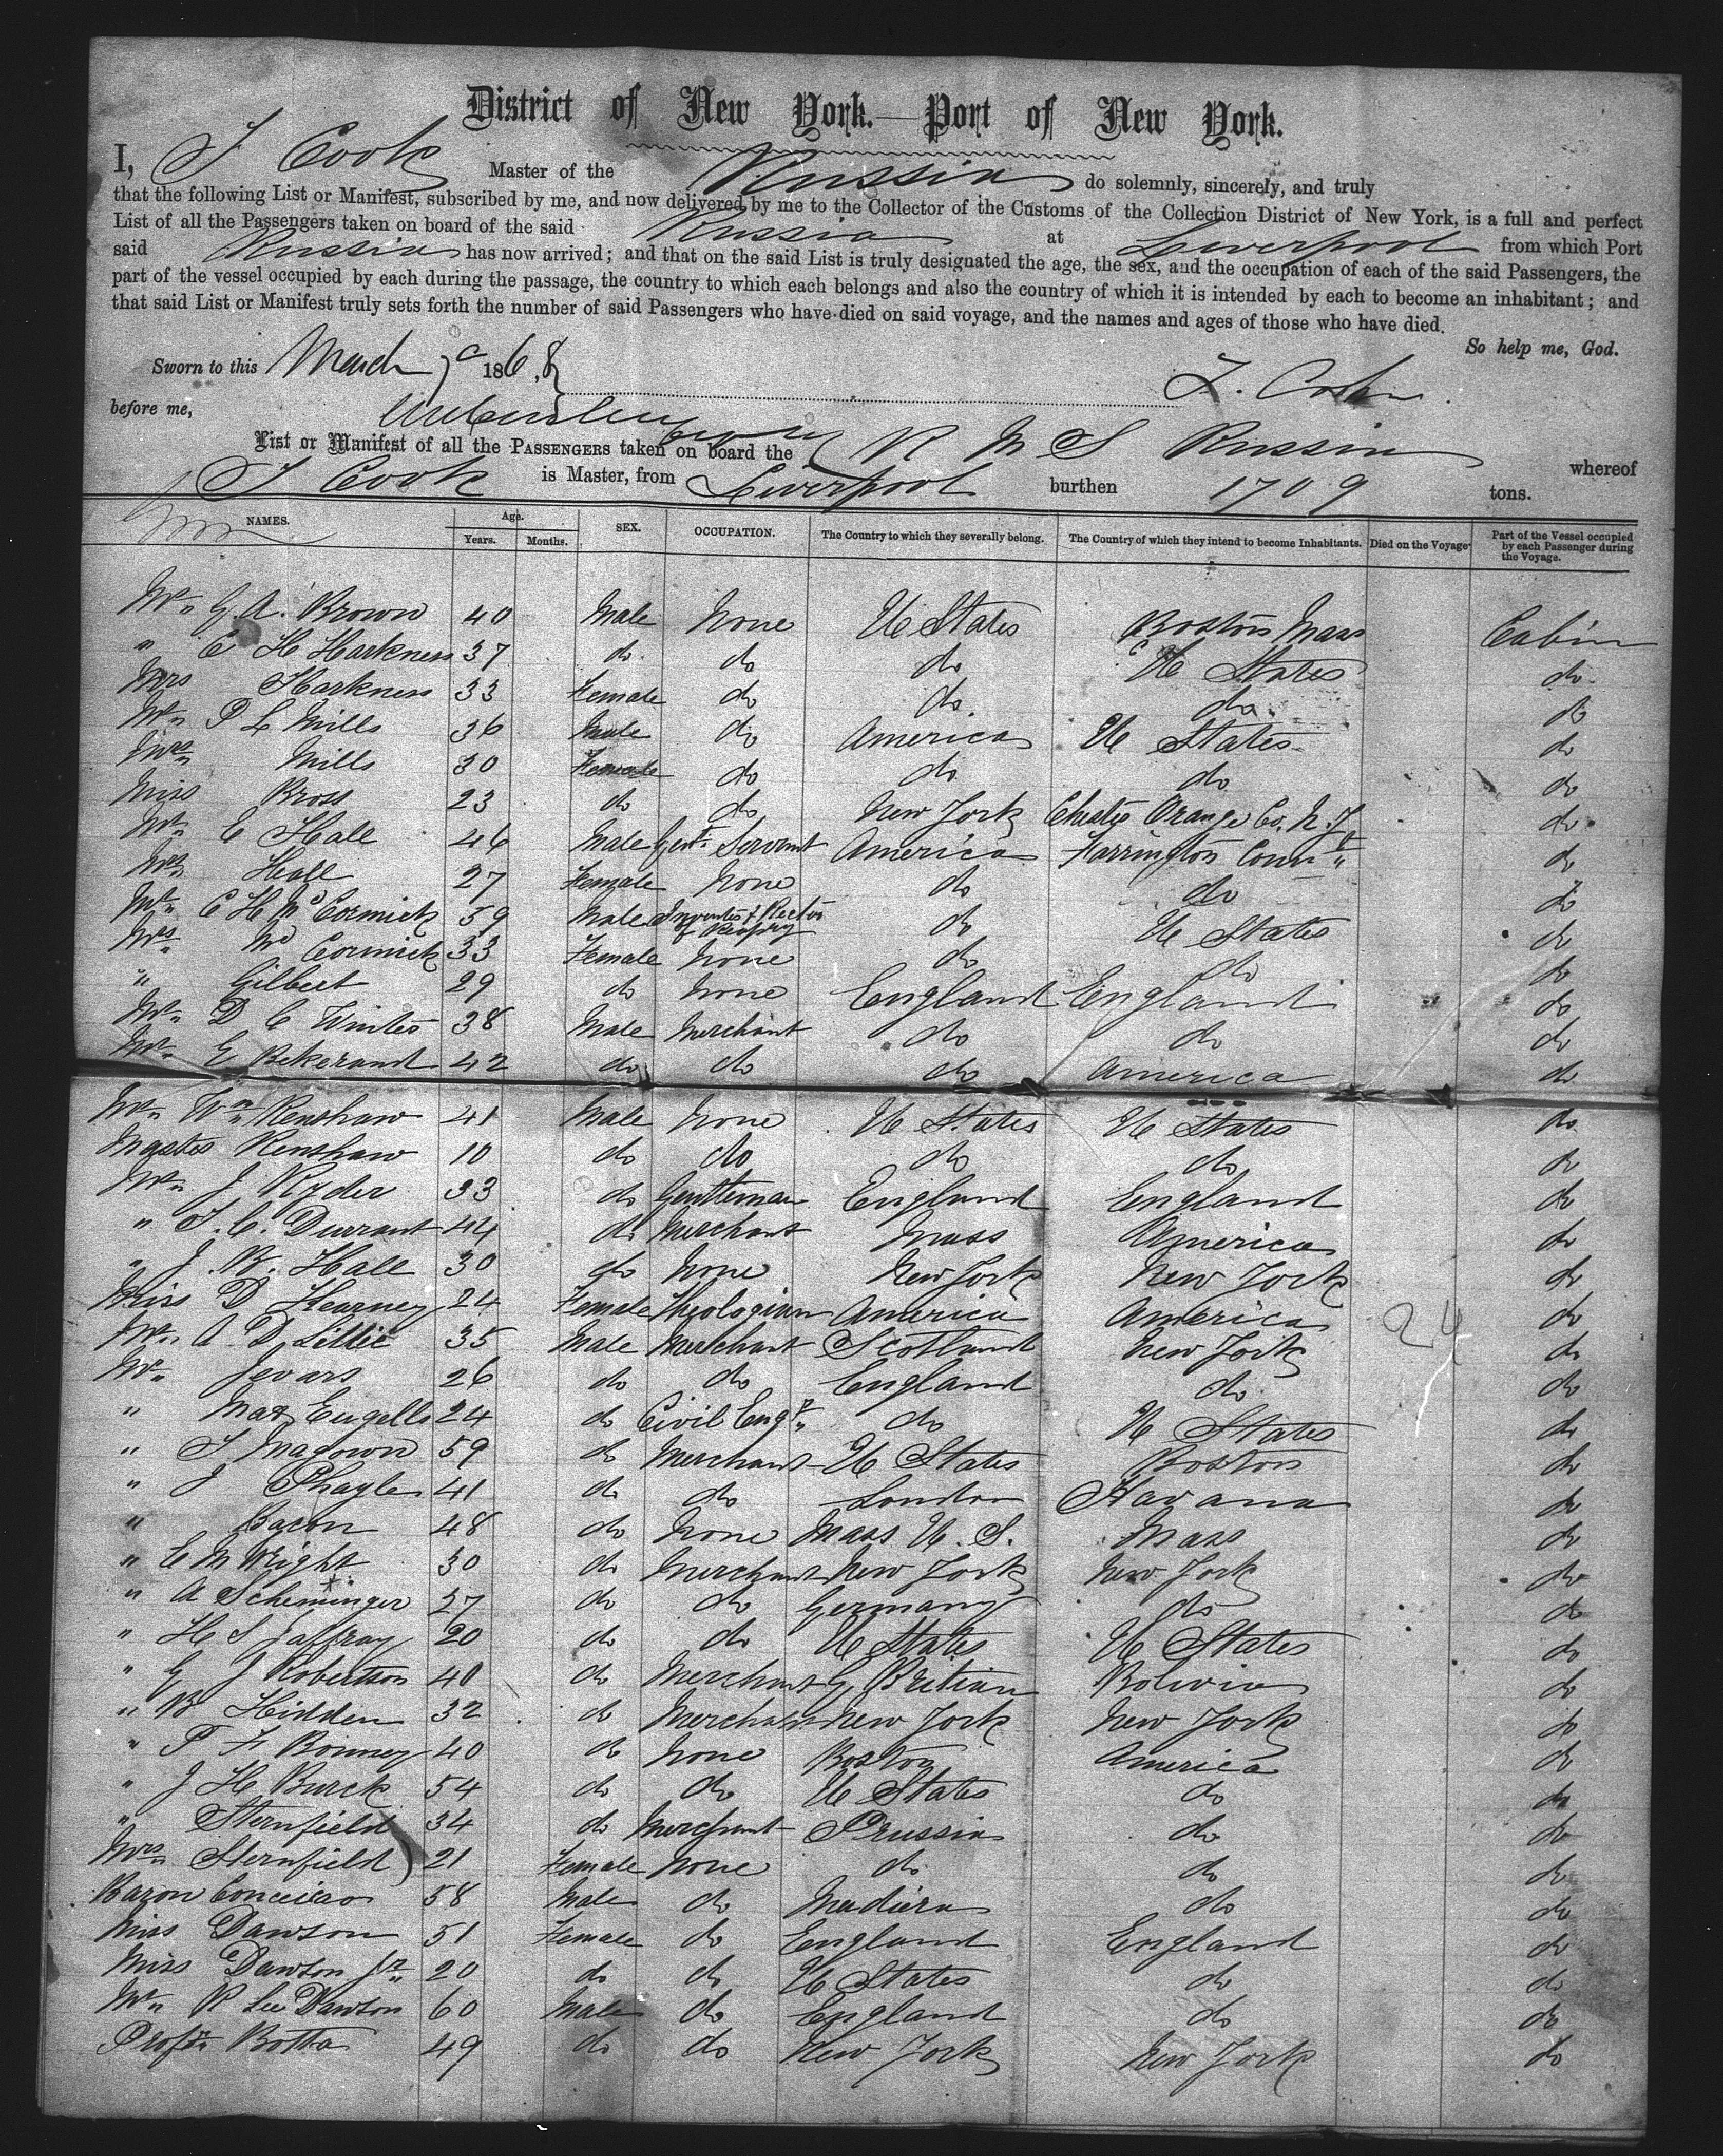 District of New York.—Port of New York.
I, T Cook Master of the Russia do solemnly, sincerely, and truly
that the following List or Manifest, subscribed by me, and now delivered by me to the Collector of the Customs of the Collection District of New York, is a full and perfect
List of all the Passengers taken on board of the said Russia at Liverpool from which Port
said Russia has now arrived; and that on the said List is truly designated the age, the sex, and the occupation of each of the said Passengers, the
part of the vessel occupied by each during the passage, the country to which each belongs and also the country of which it is intended by each to become an inhabitant; and
that said List or Manifest truly sets forth the number of said Passengers who have died on said voyage, and the names and ages of those who have died.
So help me, God.
Sworn to this March 1868 T. Cook
before me,
List or Manifest of all the PASSENGERS taken on board the R M S Russia whereof
T Cook is Master, from Liverpool burthen 1709 tons.
NAMES. Age. Years. Months. SEX. OCCUPATION. The Country to which they severally belong. The Country of which they intend to become Inhabitants. Died on the Voyage Part of the Vessel occupied by each Passenger during the Voyage.
Mr G. A. Brown 40 Male None U States Boston Mass Cabin
" C H Harkness 37 do do do U States do
Mrs Harkness 33 Female do do do do
Mr P L Mills 36 Male do America U States do
Mrs Mills 30 Female do do do do
Miss Bross 23 do do New York Chester Orange Co. N.Y. do
Mr E Hall 46 Male Gent. Servant America Farrington Conn do
Mrs Hall 27 Female None do do do
Mr C H McCormick 59 Male Inventor & of do U States do
Mrs McCormick 33 Female None do do do
" Gilbert 29 do None England England do
Mr D C Winter 38 Male Merchant do do do
Mr E Bekerand 42 do do do America do
Mr Wm Renshaw 41 Male None U States U States do
Master Renshaw 10 do do do do do
Mr J Ryder 33 do Gentleman England England do
" T. C. Durrant 44 do Merchant Mass America do
" J. B. Hall 30 do None New York New York do
Miss D Kearney 24 Female Theologian America America 24 do
Mr A D Littie 35 Male Merchant Scotland New York do
Mr Jevars 26 do do England do do
" Max Eugells 24 do Civil Engr do U States do
" T Magown 59 do Merchant U States Boston do
" J Phayle 41 do do London Havana do
" Bacon 48 do None Mass U. S. Mass do
" C M Wright 30 do Merchant New York New York do
" A Scheminger 27 do do Germany do do
" H S Jaffray 20 do do U States U States do
" G J Robertson 40 do Merchant G Britian Bolivia do
" B Hidden 32 do Merchant New York New York do
" P F Bonney 40 do None Boston America do
" J H Burck 54 do do U States do do
" Sternfield 34 do Merchant Prussia do do
Mrs Sternfield 21 Female None do do do
Baron Conceicao 58 Male do Madiera do do
Miss Dawson 51 Female do England England do
Miss Dawson Jr 20 do do U States do do
Mr R Lee Dawson 60 Male do England do do
Profr Botta 49 do do New York New York do